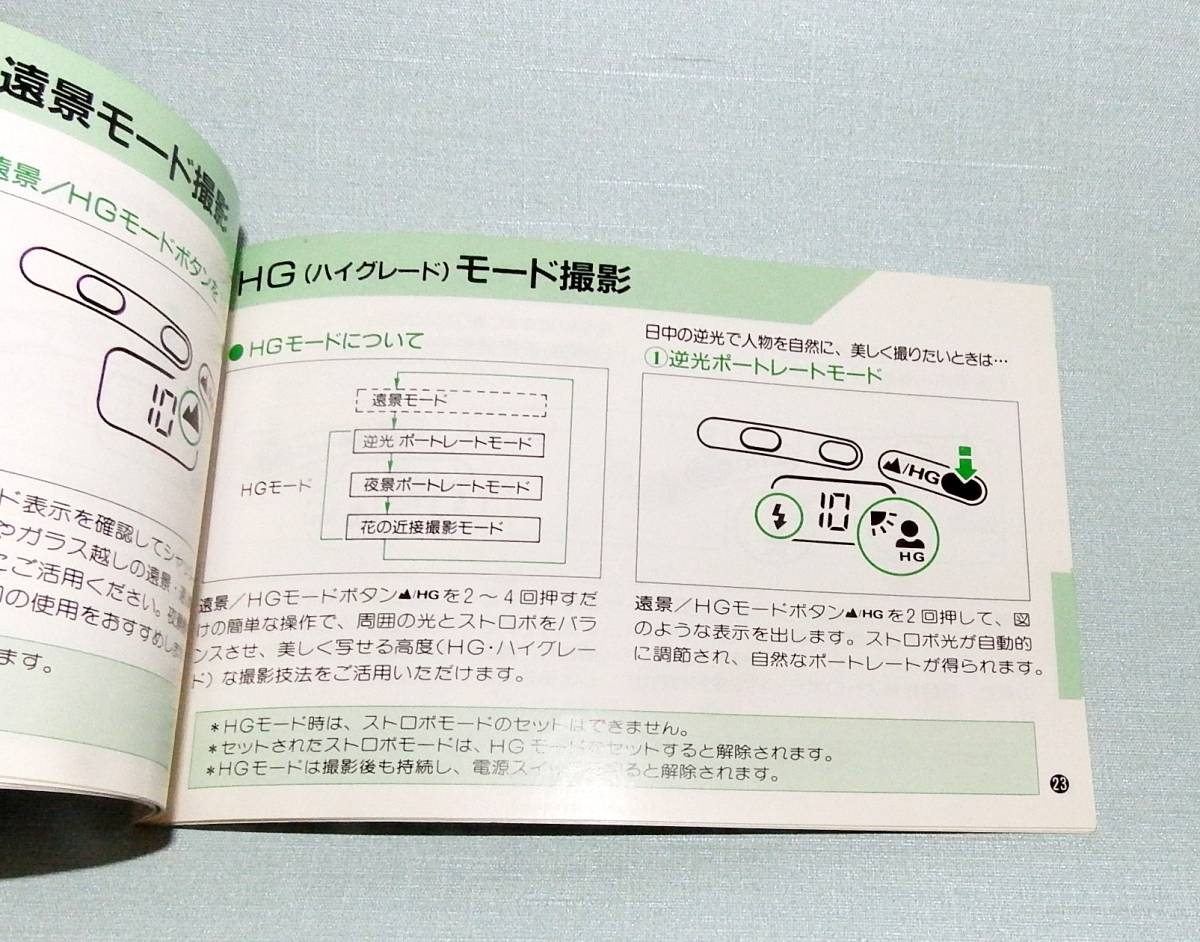 遠景モード撮影
遠景/HGモードボタンを
10
ド表示を確認してシャッ
やガラス越しの遠景・
ご活用ください。
の使用をおすすめし
ます。
HG(ハイグレード)モード撮影
●HGモードについて
遠景モード
逆光ポートレートモード
HGモード
夜景ポートレートモード
花の近接撮影モード
遠景/HGモードボタン/HGを2〜4回押すだ
けの簡単な操作で、周囲の光とストロボをバラ
ンスさせ、美しく写せる高度(HG・ハイグレー
ド)な撮影技法をご活用いただけます。
日中の逆光で人物を自然に、美しく撮りたいときは…
①逆光ポートレートモード
/HG
10
HG
遠景/HGモードボタン/HGを2回押して、図
のような表示を出します。ストロボ光が自動的
に調節され、自然なポートレートが得られます。
*HGモード時は、ストロボモードのセットはできません。
*セットされたストロボモードは、HGモードをセットすると解除されます。
*HGモードは撮影後も持続し、電源スイッチを切ると解除されます。
23